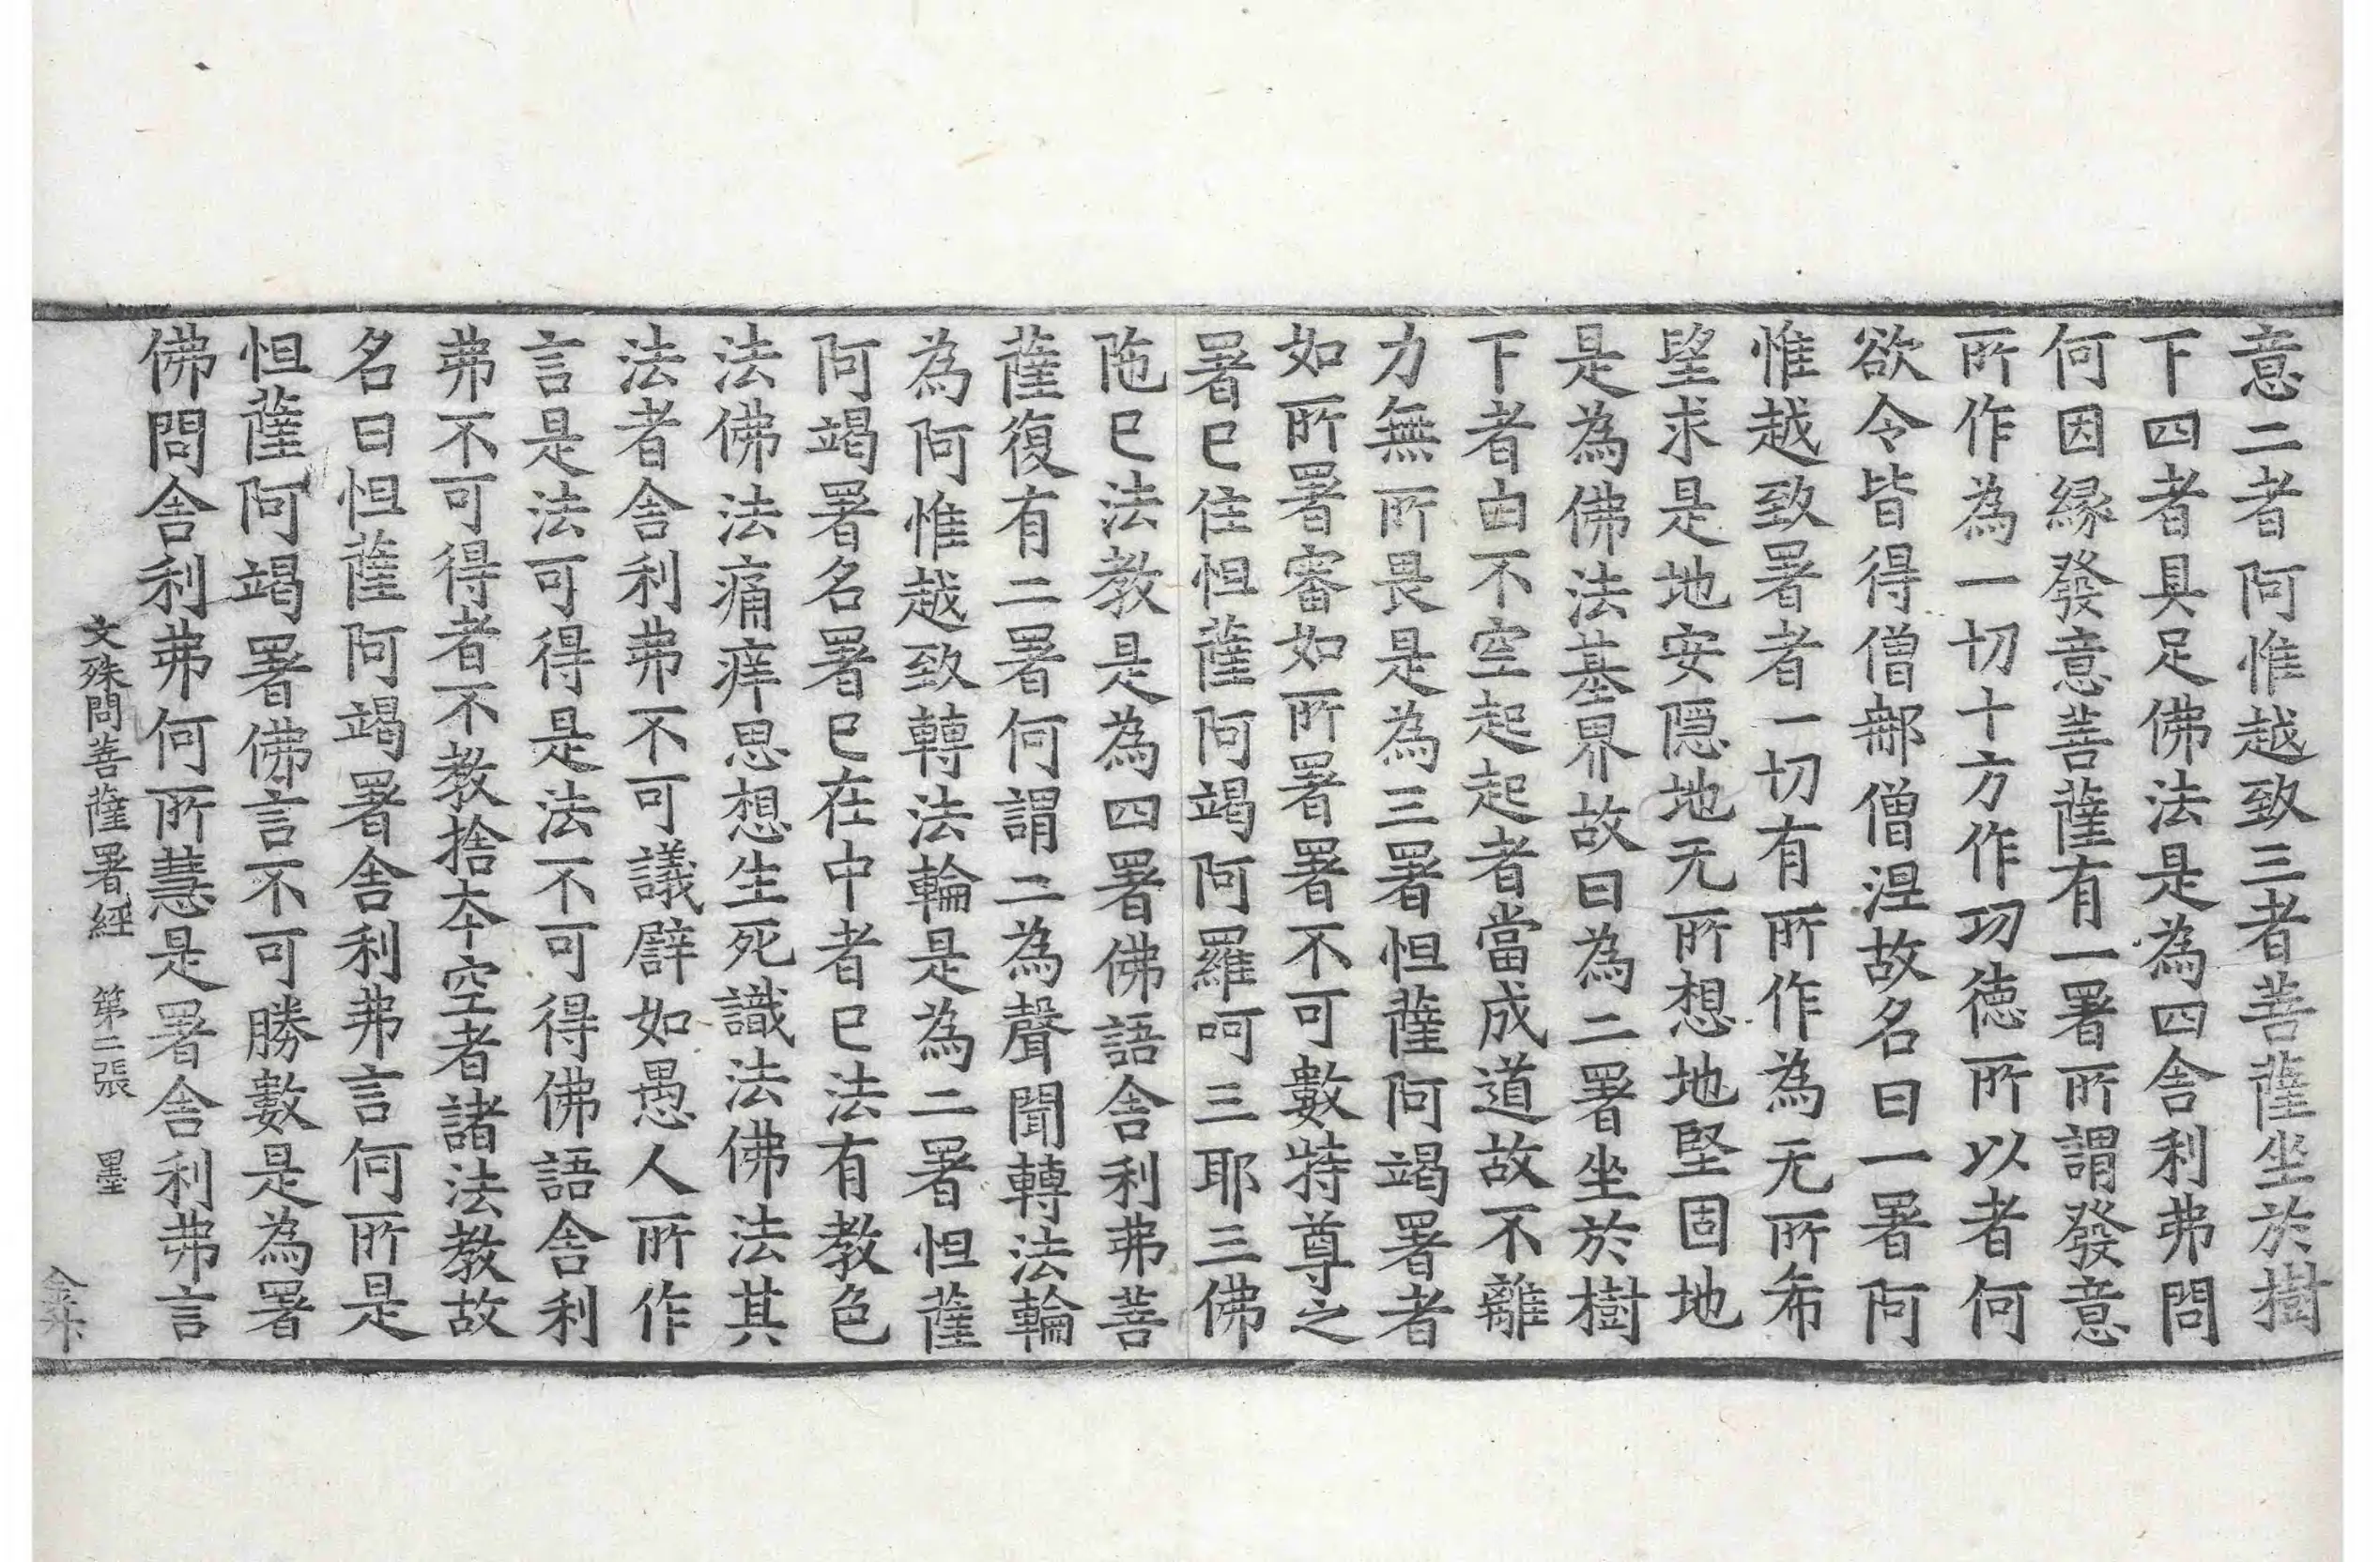 意二者阿惟越致三者菩薩坐於樹
下四者具足佛法是為四舍利弗問
何因緣發意菩薩有一署所謂發意
所作為一切十方作功德所以者何
欲令皆得僧那僧涅故名曰一署阿
惟越致署者一切有所作為无所希
望求是地安隱地无所想地堅固地
是為佛法基界故曰為二署坐於樹
下者由不空起起者當成道故不離
力無所畏是為三署怛薩阿竭署者
如所署審如所署署不可數特尊之
署已住怛薩阿竭阿羅呵三耶三佛
陁已法教是為四署佛語舍利弗菩
薩復有二署何謂二為聲聞轉法輪
為阿惟越致轉法輪是為二署怛薩
阿竭署名署已在中者已法有教色
法佛法痛痒思想生死識法佛法其
法者舍利弗不可議譬如愚人所作
言是法可得是法不可得佛語舍利
弗不可得者不教捨本空者諸法教故
名曰怛薩阿竭署舍利弗言何所是
怛薩阿竭署佛言不可勝數是為署
佛問舍利弗何所慧是署舍利弗言
文殊問菩薩署經 第二張 墨